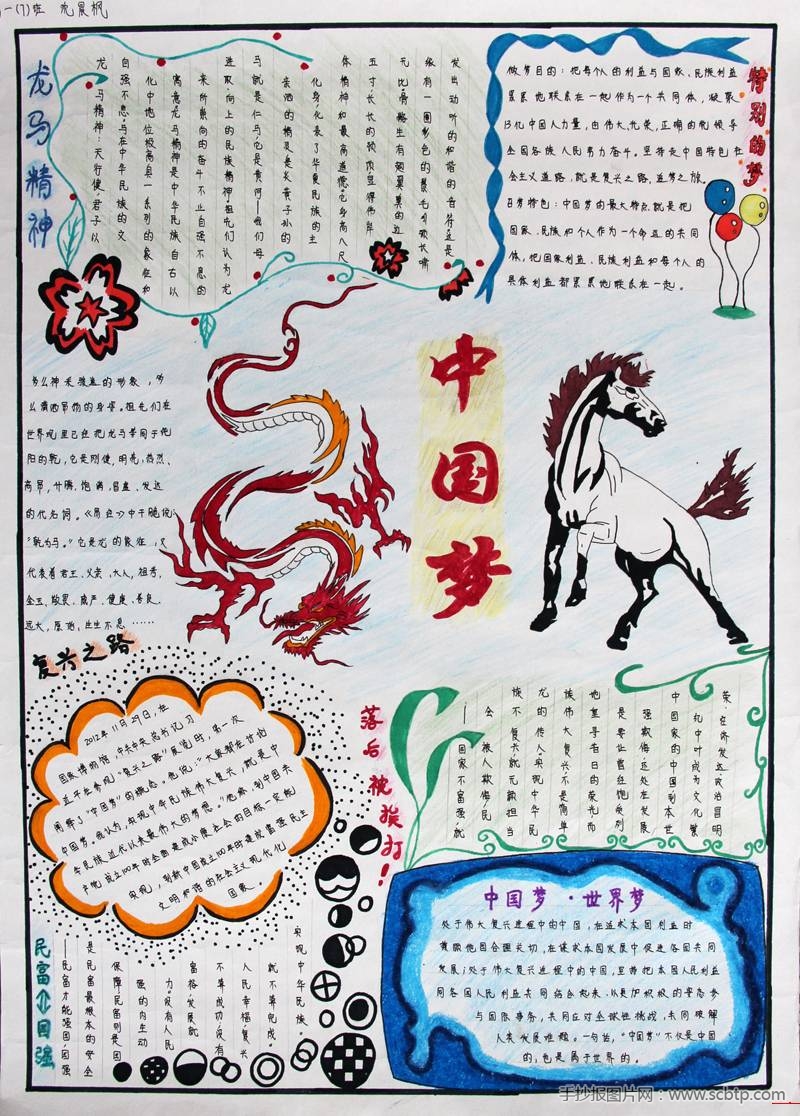 龙马精神
特别的梦
做梦目的：把每个人的利益与国家、民族利益
紧紧地联系在一起作为一个共同体，凝聚
13亿中国人力量，由伟大、光荣、正确的党领导
全国各族人民努力奋斗。坚持走中国特色社
会主义道路，就是复兴之路，追梦之旅。
梦特色：中国梦的最大特点就是把
国家、民族和个人作为一个命运的共同
体，把国家利益、民族利益和每个人的
具体利益都紧紧地联系在一起。
龙马精神，天行健，君子以
自强不息，马在中华民族的文
化中地位极高，具有一系列的象征和
寓意。龙马精神是中华民族自古以
来所崇尚的奋斗不止、自强不息的
进取、向上的民族精神。祖先们认为龙
马就是仁马，它是黄河
化身，代表了华夏民族的主
体精神和最高道德。它身高八尺
五寸，长长的颈项，显得伟岸
发出动听的和谐的音符，这是
多么神采飞扬的形象，多
么潇洒矫健的身姿。祖先们在
世界观里已经把龙马等同于
阳的乾，它是刚健、明亮、热烈、
高昂、升腾、饱满、昌盛、发达
的代名词。《易经》中干脆说：
“乾为马。”它是龙的象征，又
代表着君王、父亲、大人、祖考、
金玉、敬畏、威严、健康、善良、
远大、原始、生生不息……
中国梦
复兴之路
2012年11月29日，在
国家博物馆，中共中央总书记习
近平在参观“复兴之路”展览时，第一次
阐释了“中国梦”的概念。他说：“大家都在讨论
中国梦，我认为，实现中华民族伟大复兴，就是中
华民族近代以来最伟大的梦想。”他称，到中国共
产党成立100年时全面建成小康社会的目标一定能
实现，到新中国成立100年时建成富强民主
文明和谐的社会主义现代化
国家。
落后被挨打！
——国家不富强，就
会被人欺侮；民
族不复兴，就无颜担当
龙的传人。实现中华民
族伟大复兴，不是简单
地重寻昔日的荣光，而
是要让曾经饱受列
强欺侮、还处在发展
中国家的中国，到本世
纪中叶成为文化繁
荣、经济发达、政治昌明
民富⇧国强
——民富才能强国，国强
是民富最根本的安全
保障，民富则是国
强的内生动
力。没有人民
富裕，发展就
不算成功；没有
人民幸福，复兴
就不算完成。
实现中华民族
中国梦·世界梦
处于伟大复兴进程中的中国，在追求本国利益时
兼顾他国合理关切，在谋求本国发展中促进各国共同
发展；处于伟大复兴进程中的中国，坚持把本国人民利益
同各国人民利益共同结合起来，以更加积极的姿态参
与国际事务，共同应对全球性挑战，共同破解
人类发展难题。一句话，“中国梦”不仅是中国
的，也是属于世界的。
手抄报图片网：www.scbtp.com